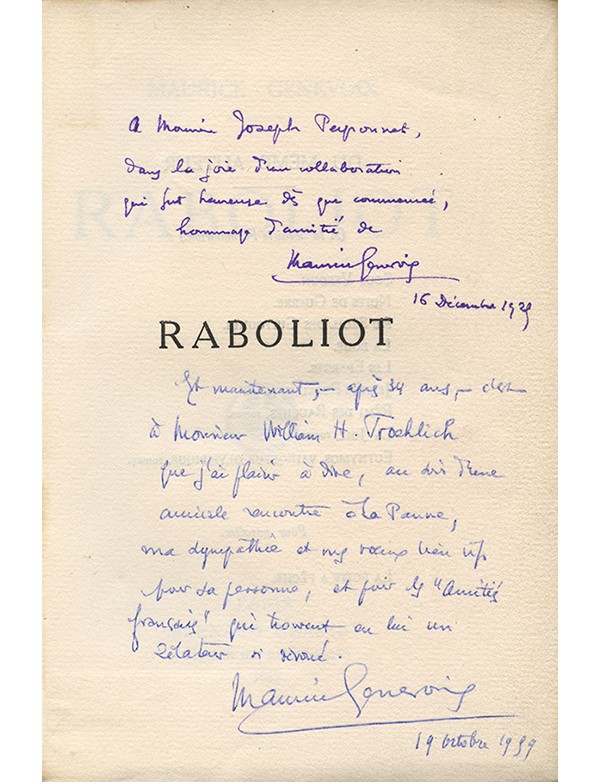 A Monsieur Joseph Peyronnet,
dans la joie d'une collaboration
qui fut heureuse dès que commencée,
hommage d'amitié de
Maurice Genevoix
16 Décembre 1925
RABOLIOT
Et maintenant, — après 34 ans, — c'est
à Monsieur William H. Froehlich
que j'ai plaisir à dire, au soir d'une
amicale rencontre à La Panne,
ma sympathie et mes vœux bien vifs
pour sa personne, et pour les "Amitiés
françaises" qui trouvent en lui un
zélateur si dévoué.
Maurice Genevoix
19 octobre 1959